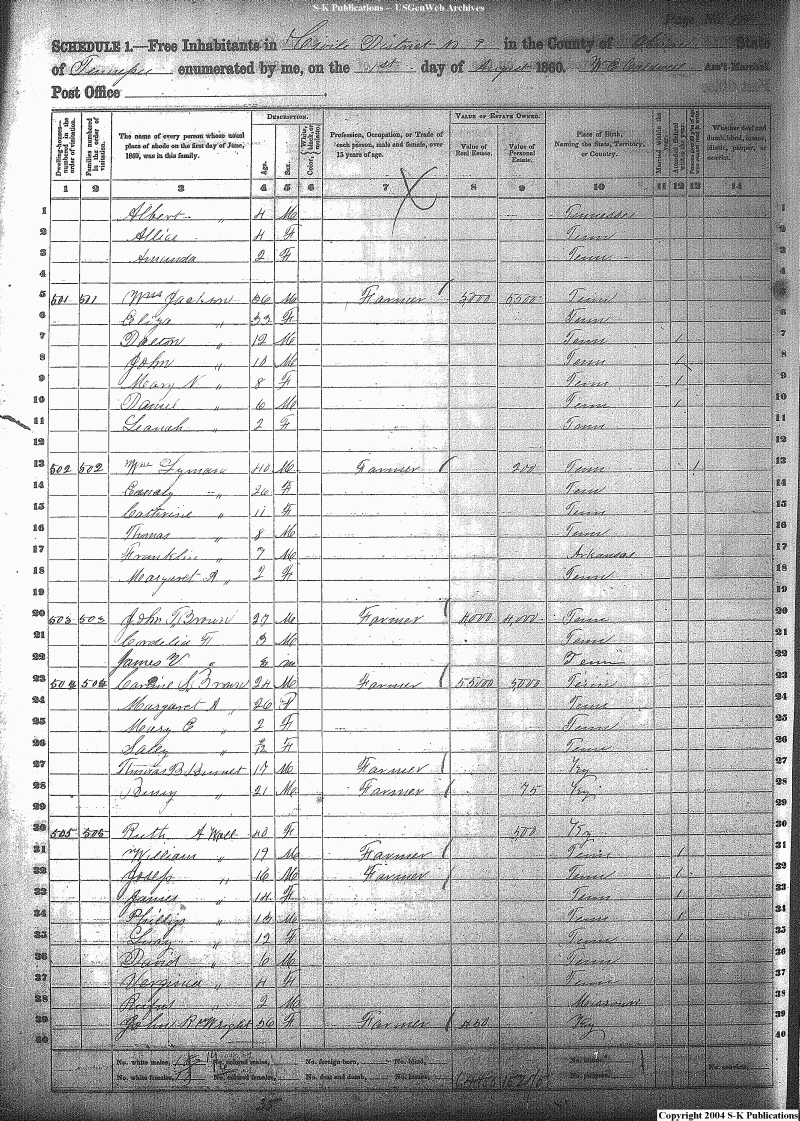 S-K Publications – USGenWeb Archives
Page No.
SCHEDULE 1.—Free Inhabitants in Civil District No 9 in the County of State
of Tennessee enumerated by me, on the 1st day of August 1860. Ass't Marshal.
Post Office
Dwelling-houses—numbered in the order of visitation.
Families numbered in the order of visitation.
The name of every person whose usual place of abode on the first day of June, 1860, was in this family.
DESCRIPTION.
Age.
Sex.
Color, White, black, or mulatto.
Profession, Occupation, or Trade of each person, male and female, over 15 years of age.
VALUE OF ESTATE OWNED.
Value of Real Estate.
Value of Personal Estate.
Place of Birth, Naming the State, Territory, or Country.
Married within the year.
Attended School within the year.
Whether deaf and dumb, blind, insane, idiotic, pauper, or convict.
1 2 3 4 5 6 7 8 9 10 11 12 13 14
1 Albert " 4 M Tennessee 1
2 Allice 4 F Tenn 2
3 Amanda 2 F Tenn 3
4 4
5 501 501 Wm Jackson 36 M Farmer 5,000 5500 Tenn 5
6 Eliza " 33 F Tenn 6
7 Dalton " 12 M Tenn 1 7
8 John " 10 M Tenn 1 8
9 Mary N " 8 F Tenn 1 9
10 Daniel " 6 M Tenn 1 10
11 Leanah " 2 F Tenn 11
12 12
13 502 502 Wm Lyman 40 M Farmer 200 Tenn 1 13
14 " 26 F Tenn 14
15 Catherine " 11 F Tenn 15
16 Thomas " 8 M Tenn 16
17 Franklin " 7 M Arkansas 17
18 Margaret A " 2 F Tenn 18
19 19
20 503 503 John T Brown 27 M Farmer 4000 4,000 Tenn 20
21 Cordelia F 3 M Tenn 21
22 James V " 2 m Tenn 22
23 504 504 S Brown 24 M Farmer 55000 5,000 Tenn 23
24 Margaret A " 26 F Tenn 24
25 Mary E " 2 F Tenn 25
26 Saley " F Tenn 26
27 Thomas B Burnet 17 M Farmer Ky 27
28 " 21 M Farmer 75 Ky 28
29 29
30 505 505 Ruth A Wall 40 F 500 Ky 30
31 William " 19 M Farmer Tenn 1 31
32 Joseph " 16 M Farmer Tenn 1 32
33 James " 14 F Tenn 1 33
34 Phillip " 13 M Tenn 1 34
35 " 12 F Tenn 1 35
36 David " 6 M Tenn 36
37 Verginia " 4 F Tenn 37
38 Rufus " 2 M Missouri 38
39 John R Wright 56 F Farmer 450 Ky 39
40 40
No. white males, No. colored males, No. foreign born, No. blind,
No. white females, No. colored females, No. deaf and dumb, No. insane, No. convicts,
35
Copyright 2004 S-K Publications